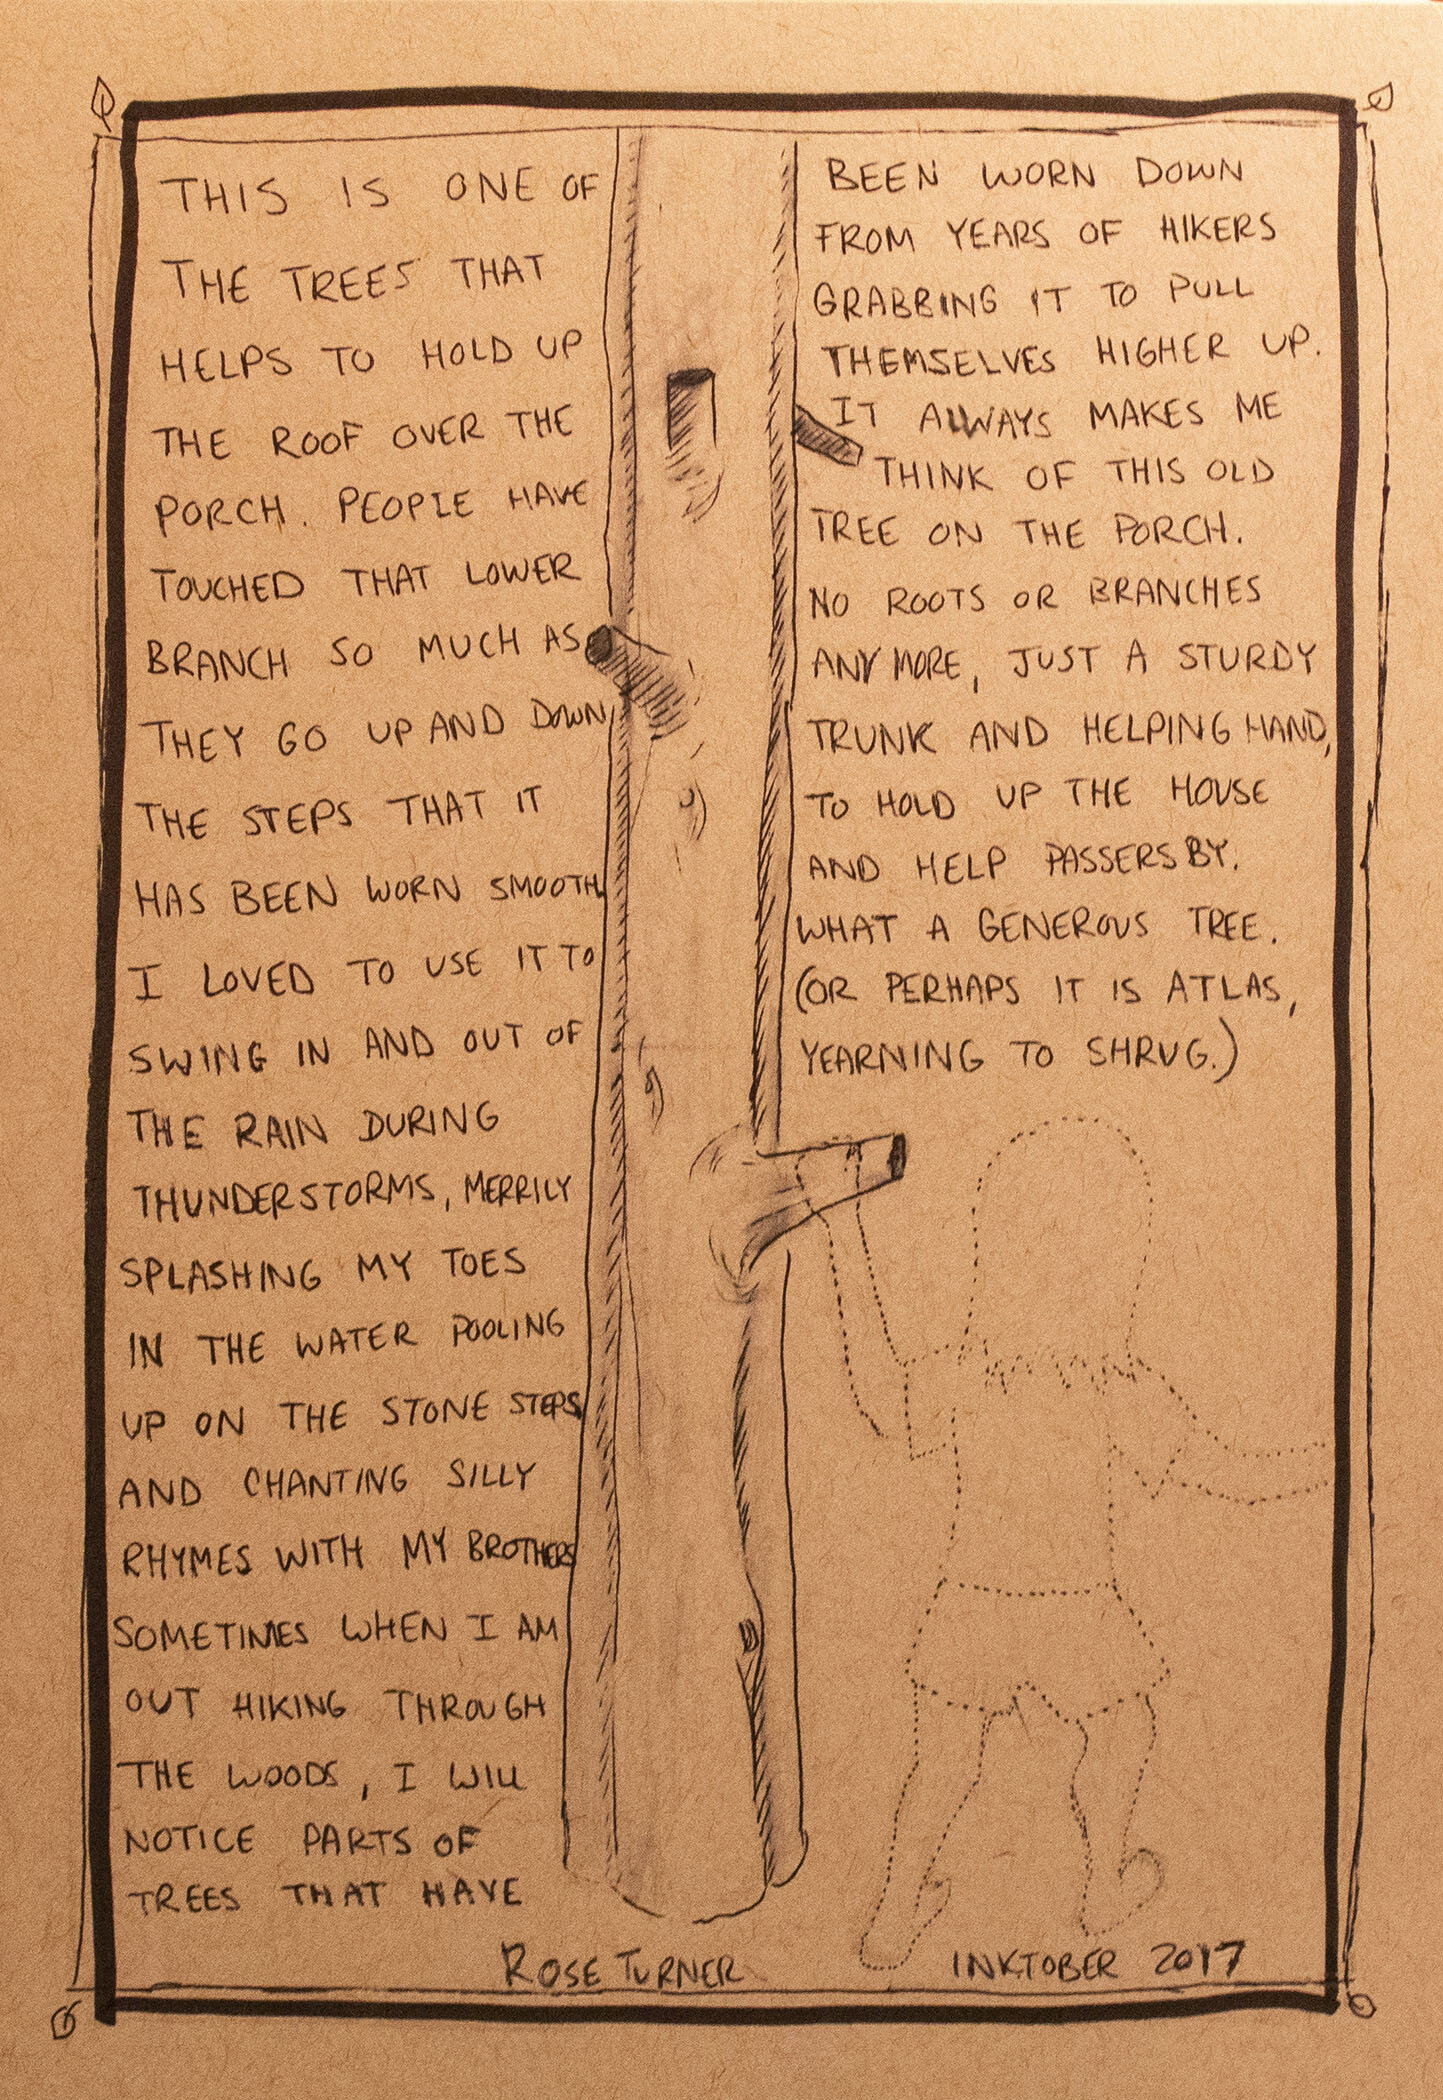 THIS IS ONE OF
THE TREES THAT
HELPS TO HOLD UP
THE ROOF OVER THE
PORCH. PEOPLE HAVE
TOUCHED THAT LOWER
BRANCH SO MUCH AS
THEY GO UP AND DOWN
THE STEPS THAT IT
HAS BEEN WORN SMOOTH.
I LOVED TO USE IT TO
SWING IN AND OUT OF
THE RAIN DURING
THUNDERSTORMS, MERRILY
SPLASHING MY TOES
IN THE WATER POOLING
UP ON THE STONE STEPS
AND CHANTING SILLY
RHYMES WITH MY BROTHERS
SOMETIMES WHEN I AM
OUT HIKING THROUGH
THE WOODS, I WILL
NOTICE PARTS OF
TREES THAT HAVE
BEEN WORN DOWN
FROM YEARS OF HIKERS
GRABBING IT TO PULL
THEMSELVES HIGHER UP.
IT ALWAYS MAKES ME
THINK OF THIS OLD
TREE ON THE PORCH.
NO ROOTS OR BRANCHES
ANYMORE, JUST A STURDY
TRUNK AND HELPING HAND,
TO HOLD UP THE HOUSE
AND HELP PASSERSBY.
WHAT A GENEROUS TREE.
(OR PERHAPS IT IS ATLAS,
YEARNING TO SHRUG.)
ROSE TURNER
INKTOBER 2017